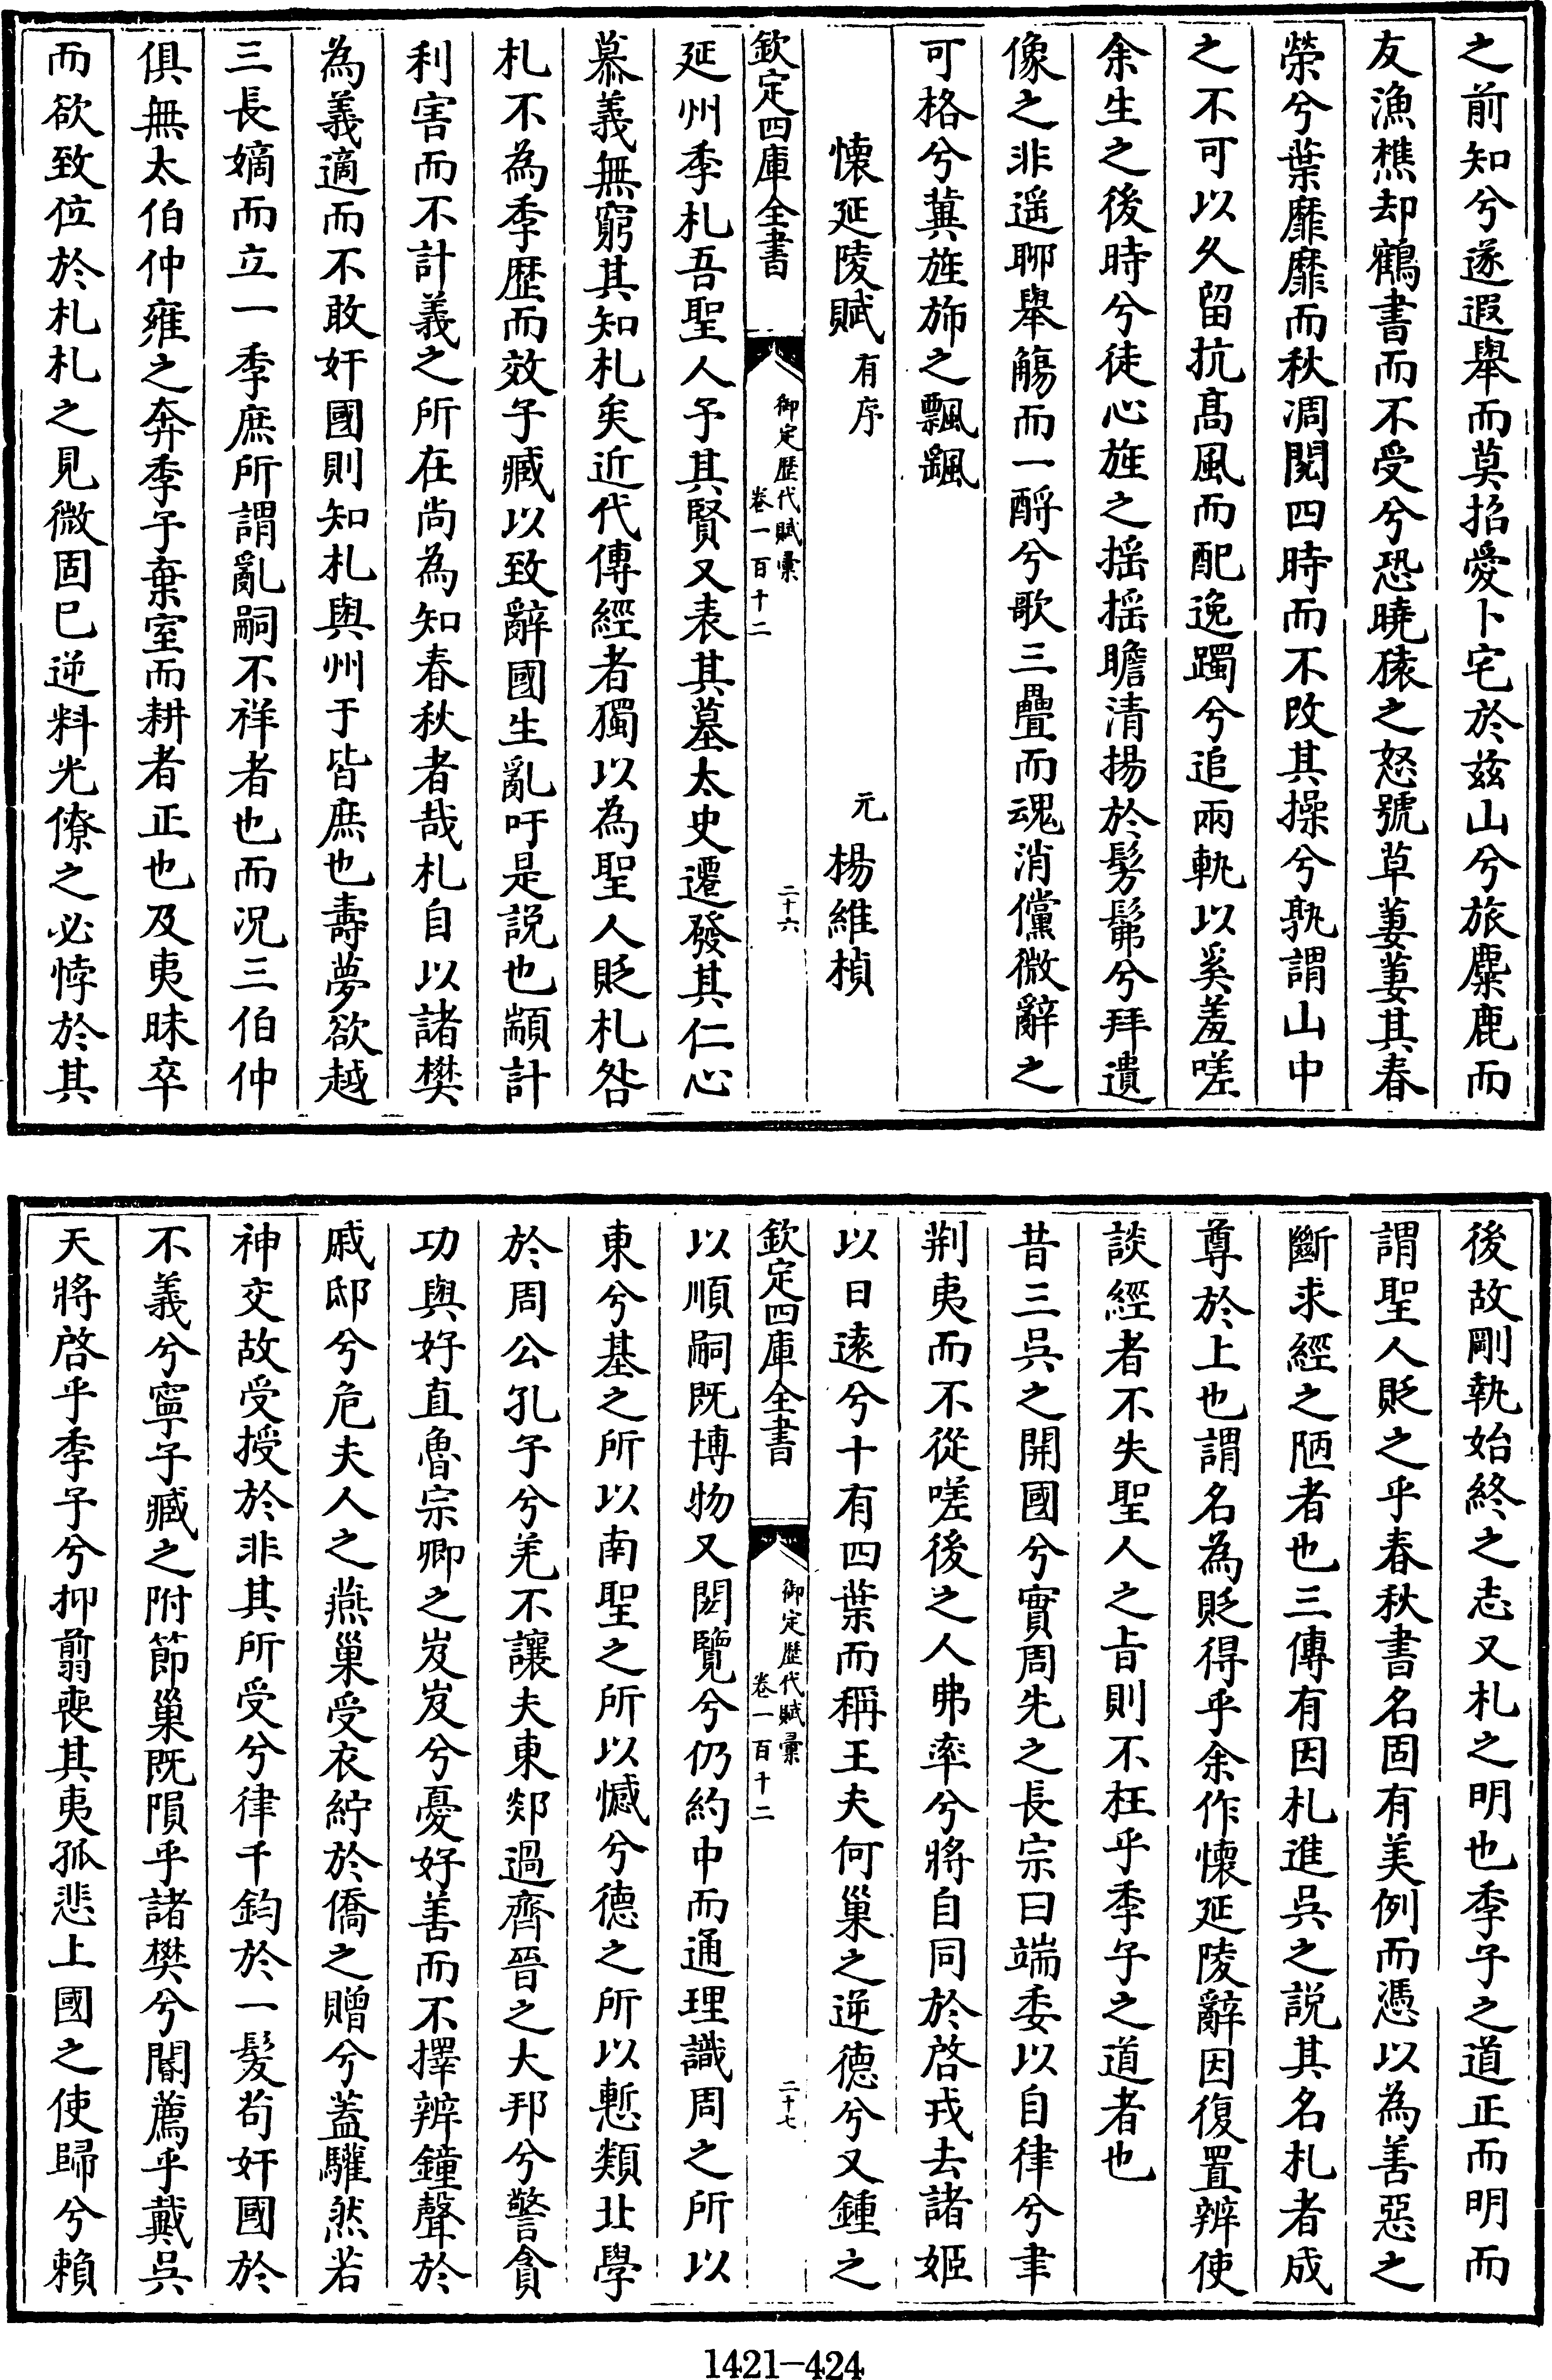 之前知兮遂遐舉而莫招愛卜宅於兹山兮旅麋鹿而
友漁樵却鶴書而不受兮恐曉猿之怒號草萋萋其春
榮兮葉靡靡而秋凋閱四時而不改其操兮孰謂山中
之不可以久留抗髙風而配逸躅兮追兩軌以奚羞嗟
余生之後時兮徒心旌之揺揺瞻清揚於髣髴兮拜遺
像之非遥聊舉觴而一酹兮歌三疊而魂消儻微辭之
可格兮冀旌斾之飄颻
懐延陵賦有序
元楊維楨
欽定四庫全書
御定歴代賦彚
卷一百十二
二十六
延州季札吾聖人予其賢又表其墓太史遷發其仁心
慕義無窮其知札矣近代傳經者獨以為聖人貶札咎
札不為季歴而效子臧以致辭國生亂吁是説也顓計
利害而不計義之所在尚為知春秋者哉札自以諸樊
為義適而不敢奸國則知札與州于皆庶也壽夢欲越
三長嫡而立一季庶所謂亂嗣不祥者也而况三伯仲
俱無太伯仲雍之奔季子棄室而耕者正也及夷昧卒
而欲致位於札札之見微固已逆料光僚之必悖於其
後故剛執始終之志又札之明也季子之道正而明而
謂聖人貶之乎春秋書名固有美例而憑以為善惡之
斷求經之陋者也三傳有因札進呉之説其名札者成
尊於上也謂名為貶得乎余作懐延陵辭因復置辨使
談經者不失聖人之旨則不枉乎季子之道者也
昔三呉之開國兮實周先之長宗曰端委以自律兮聿
荆夷而不從嗟後之人弗率兮將自同於啓戎去諸姬
以日遠兮十有四葉而稱王夫何巢之逆德兮又鍾之
欽定四庫全書
御定歴代賦彚
卷一百十二
二十七
以順嗣既博物又閎覽兮仍約中而通理識周之所以
東兮基之所以南聖之所以憾兮德之所以慙類北學
於周公孔子兮羌不讓夫東郯過齊晉之大邦兮警貪
功與好直魯宗卿之岌岌兮憂好善而不擇辨鐘聲於
戚邸兮危夫人之燕巢受衣紵於僑之贈兮蓋驩然若
神交故受授於非其所受兮律千鈞於一髪茍奸國於
不義兮寧子臧之附節巢既隕乎諸樊兮閽薦乎戴呉
天將啓乎季子兮抑翦喪其夷孤悲上國之使歸兮賴
1421—424